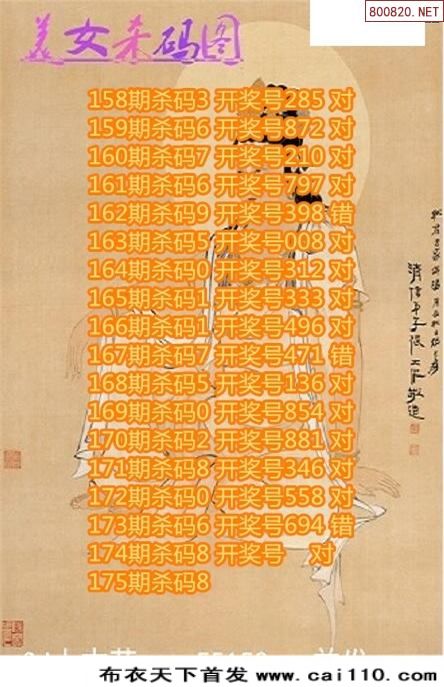 800820.NET
美女杀码图
158期杀码3 开奖号285 对
159期杀码6 开奖号872 对
160期杀码7 开奖号210 对
161期杀码6 开奖号797 对
162期杀码9 开奖号398 错
163期杀码5 开奖号008 对
164期杀码0 开奖号312 对
165期杀码1 开奖号333 对
166期杀码1 开奖号496 对
167期杀码7 开奖号471 错
168期杀码5 开奖号136 对
169期杀码0 开奖号854 对
170期杀码2 开奖号881 对
171期杀码8 开奖号346 对
172期杀码0 开奖号558 对
173期杀码6 开奖号694 错
174期杀码8 开奖号 对
175期杀码8
布衣天下首发 www.cai110.com